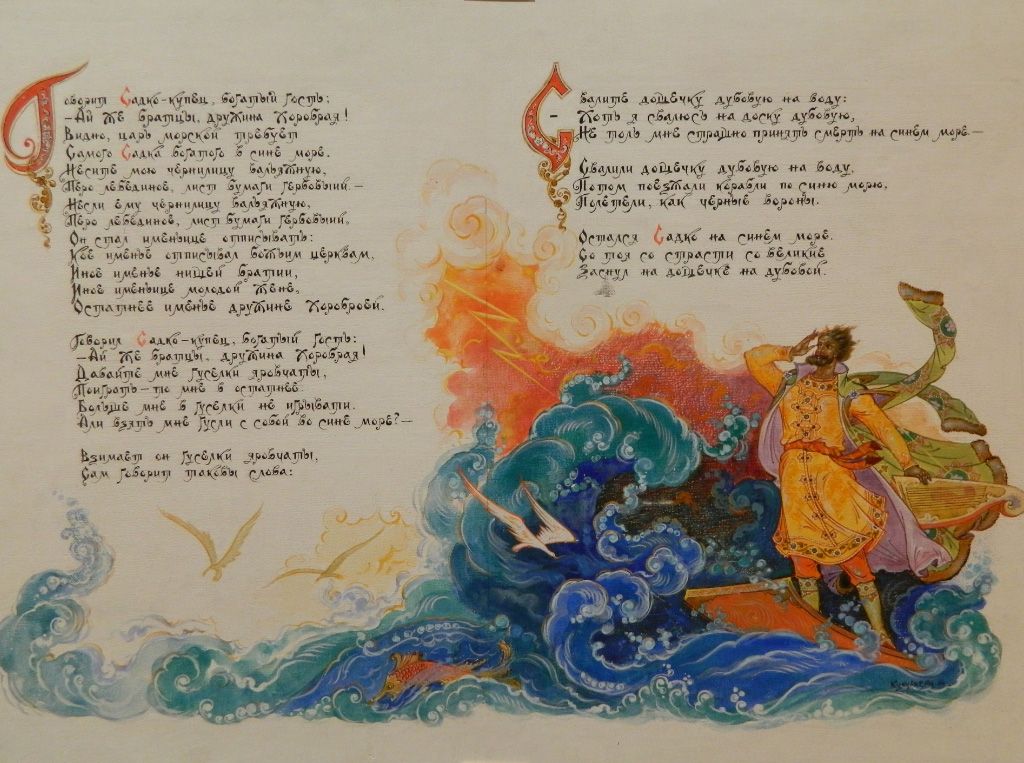 Говорит Садко-купец, богатый гость:
–Ай же братцы, дружина хоробрая!
Видно, царь морской требует
Самого Садка богатого в сине море.
Несите мою чернилицу вальяжную,
Перо лебединое, лист бумаги гербовый.–
Несли ему чернилицу вальяжную,
Перо лебединое, лист бумаги гербовый,
Он стал именьице отписывать:
Кое именье отписывал божьим церквам,
Иное именье нищей братии,
Иное именьице молодой жене,
Остатнее именье дружине хороброей.
Говорил Садко-купец, богатый гость:
–Ай же братцы, дружина хоробрая!
Давайте мне гуселки яровчаты,
Поиграть-то мне в остатнее.
Больше мне в гуселки не игрывати.
Али взять мне гусли с собой во сине море?–
Взимает он гуселки яровчаты,
Сам говорит таковы слова:
Свалите дощечку дубовую на воду:
–Хоть я свалюсь на доску дубовую,
Не толь мне страшно принять смерть на синем море.–
Свалили дощечку дубовую на воду,
Потом поезжали корабли по синю морю,
Полетели, как черные вороны.
Остался Садко на синем море.
Со тоя со страсти со великие
Заснул на дощечке на дубовой.